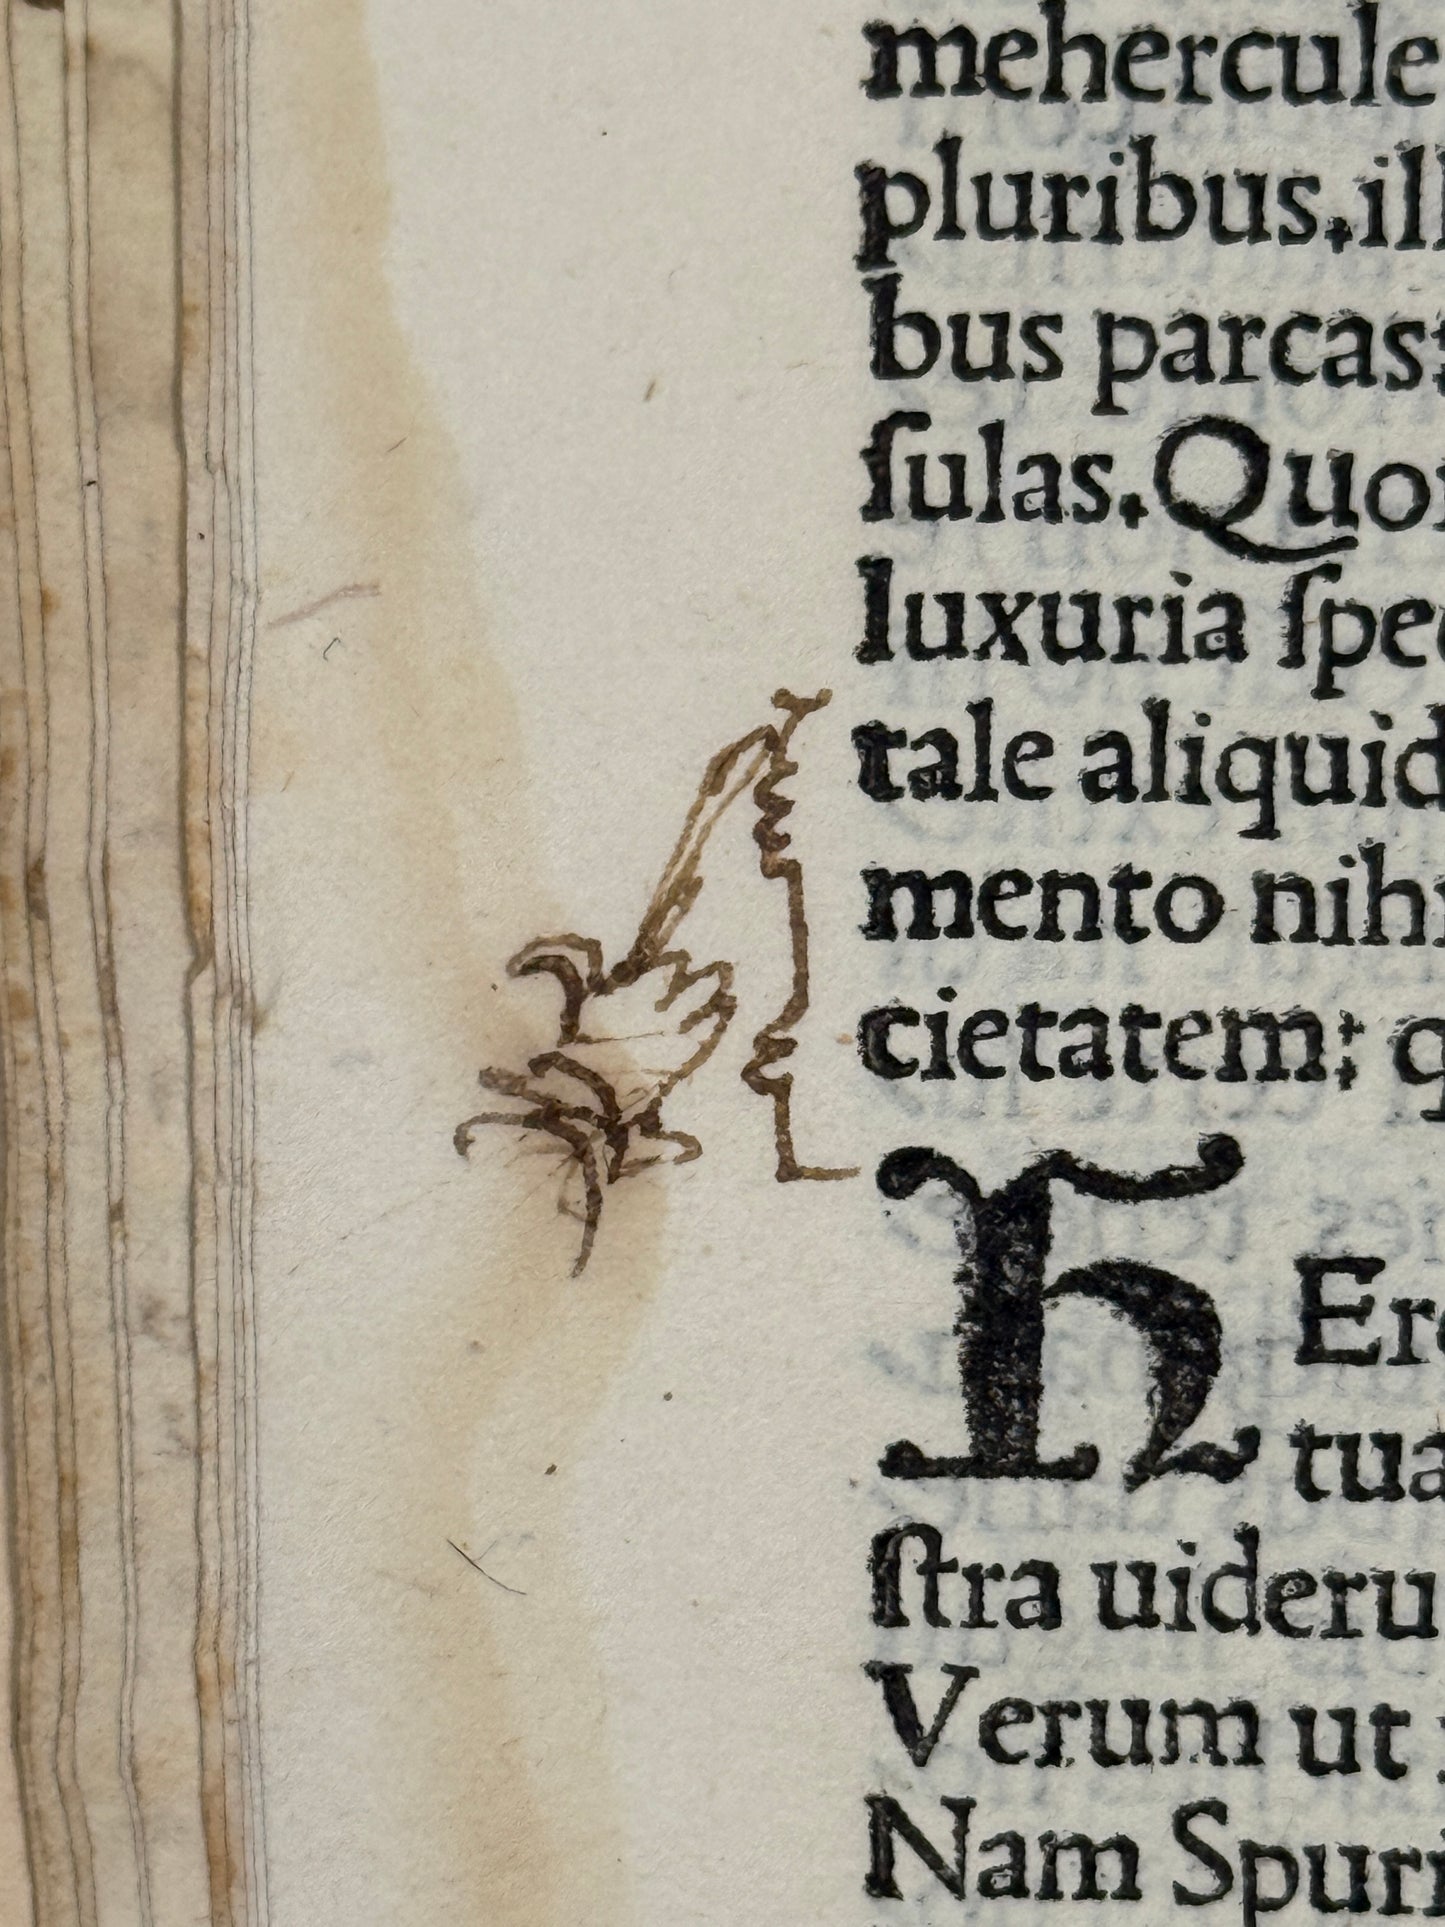 mehercule
pluribus.ill
bus parcas:
ſulas.Quo
luxuria ſpe
tale aliquid
mento nihi
cietatem: q
H Ere
tua
ſtra uideru
Verum ut
Nam Spuri